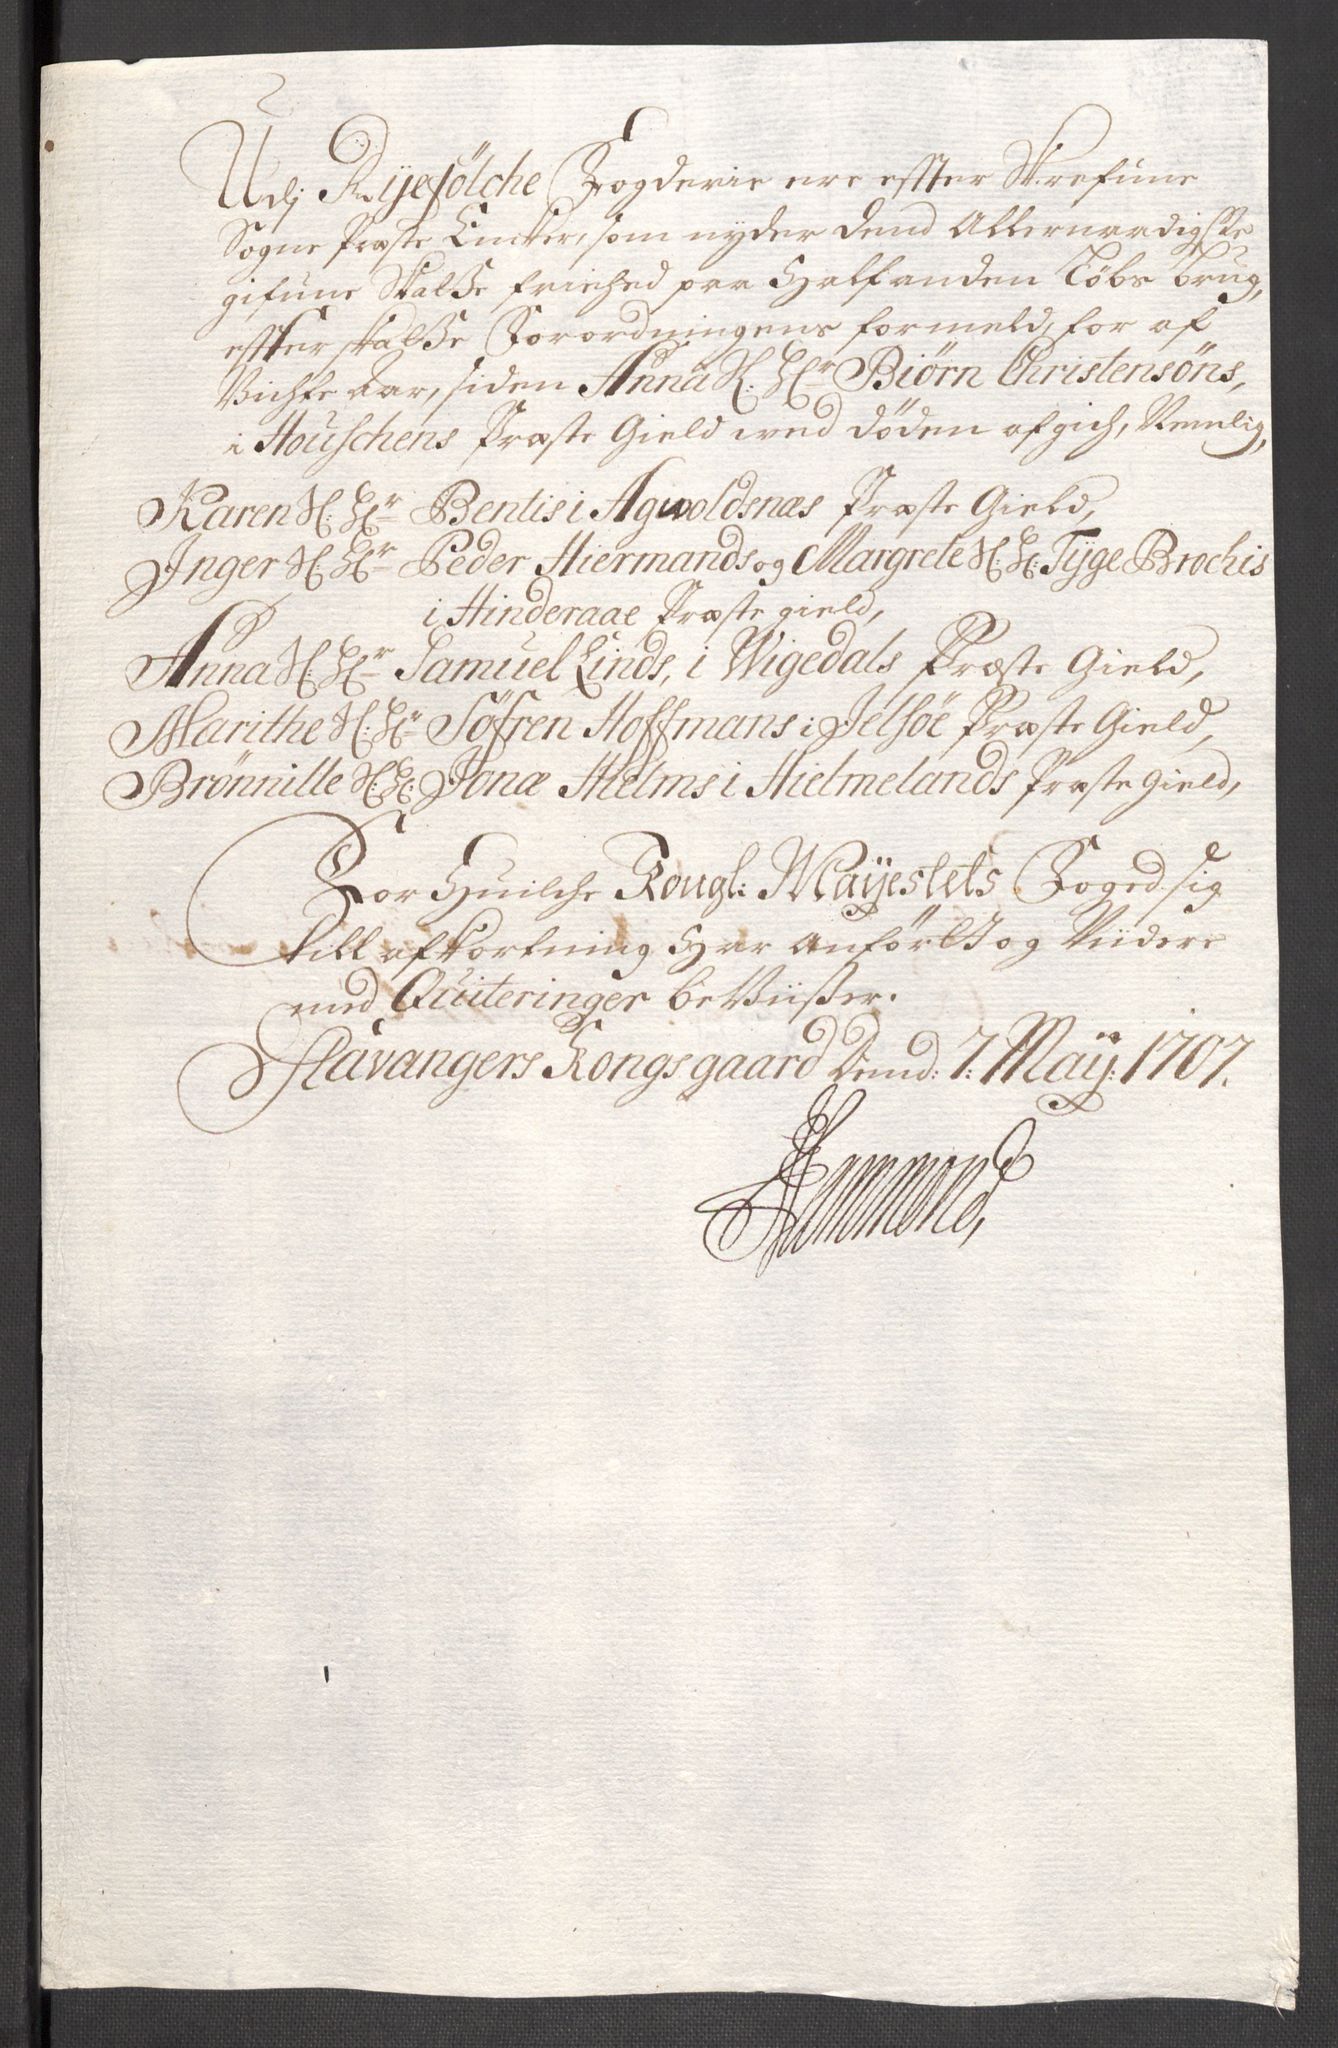 Udj Rÿefölche Fogderie ere effter Skrefune
Sogne Præste Encker, som nyder dend Allernaadigste
gifune Skatte frihed paa Halfanden Løbs brug,
effter skatte Forordningens formeld, for af
Vichte Aar, siden Anna Sl: Hr Biørn Christensöns,
i Houschens Præste Gield ved döden afgich, Nemlig,
Karen Sl: Hr Bentis i Agwoldsnæs Præste Gield,
Inger Sl: Hr Peder Hiermands og Margrete Sl: H: Tÿge Brochis
i Hinderaae Præste gield,
Anna Sl: Hr Samuel Linds, i Wigedals Præste Gield,
Marithe Sl: Hr Søfren Hoffmans i Jelsöe Præste Gield,
Brønnille Sl: H: Jonæ Hielms i Hielmelands Præste gield,
For Huilche Kongl: Maÿestets Foged sig
till afkortning Har Anförlt og Viidere
med Quiteringer beviiser.
Stavangers Kongsgaard Dend: 7: Maÿ: 1707.
Hammond,